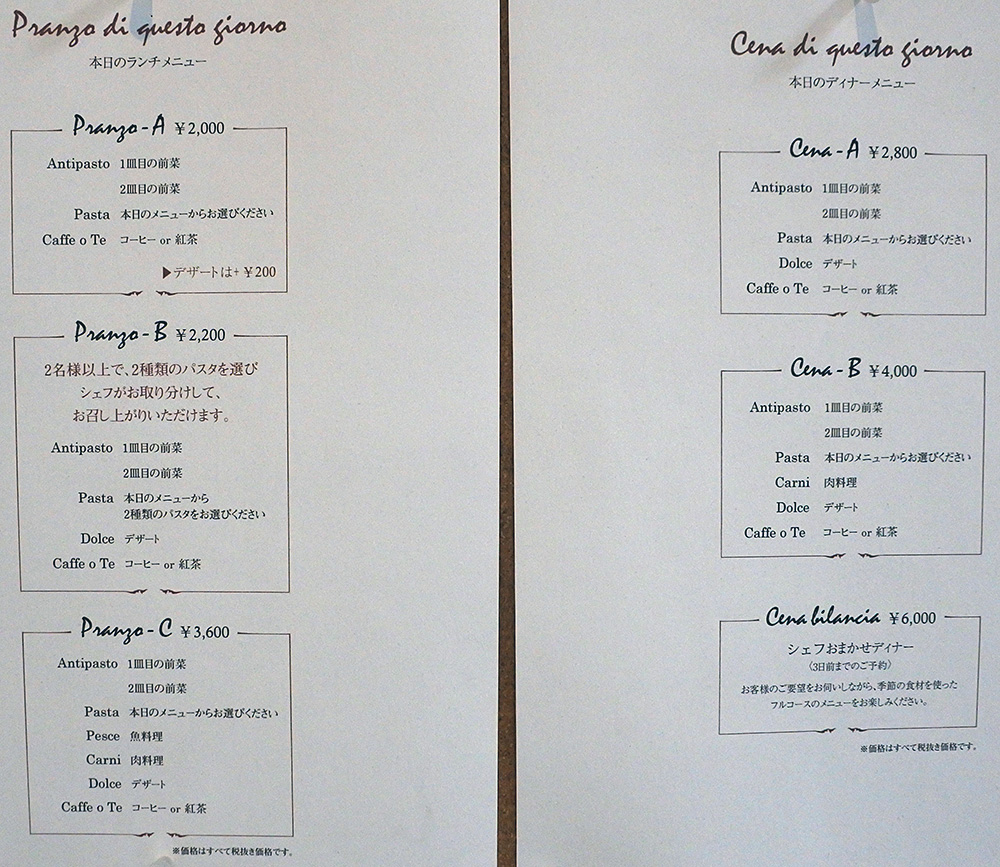 Pranzo di questo giorno
本日のランチメニュー
Pranzo-A ¥2,000
Antipasto 1皿目の前菜
2皿目の前菜
Pasta 本日のメニューからお選びください
Caffe o Te コーヒー or 紅茶
▶デザートは+¥200
Pranzo-B ¥2,200
2名様以上で、2種類のパスタを選び
シェフがお取り分けして、
お召し上がりいただけます。
Antipasto 1皿目の前菜
2皿目の前菜
Pasta 本日のメニューから
2種類のパスタをお選びください
Dolce デザート
Caffe o Te コーヒー or 紅茶
Pranzo-C ¥3,600
Antipasto 1皿目の前菜
2皿目の前菜
Pasta 本日のメニューからお選びください
Pesce 魚料理
Carni 肉料理
Dolce デザート
Caffe o Te コーヒー or 紅茶
※価格はすべて税抜き価格です。
Cena di questo giorno
本日のディナーメニュー
Cena-A ¥2,800
Antipasto 1皿目の前菜
2皿目の前菜
Pasta 本日のメニューからお選びください
Dolce デザート
Caffe o Te コーヒー or 紅茶
Cena-B ¥4,000
Antipasto 1皿目の前菜
2皿目の前菜
Pasta 本日のメニューからお選びください
Carni 肉料理
Dolce デザート
Caffe o Te コーヒー or 紅茶
Cena bilancia ¥6,000
シェフおまかせディナー
〈3日前までのご予約〉
お客様のご要望をお伺いしながら、季節の食材を使った
フルコースのメニューをお楽しみください。
※価格はすべて税抜き価格です。